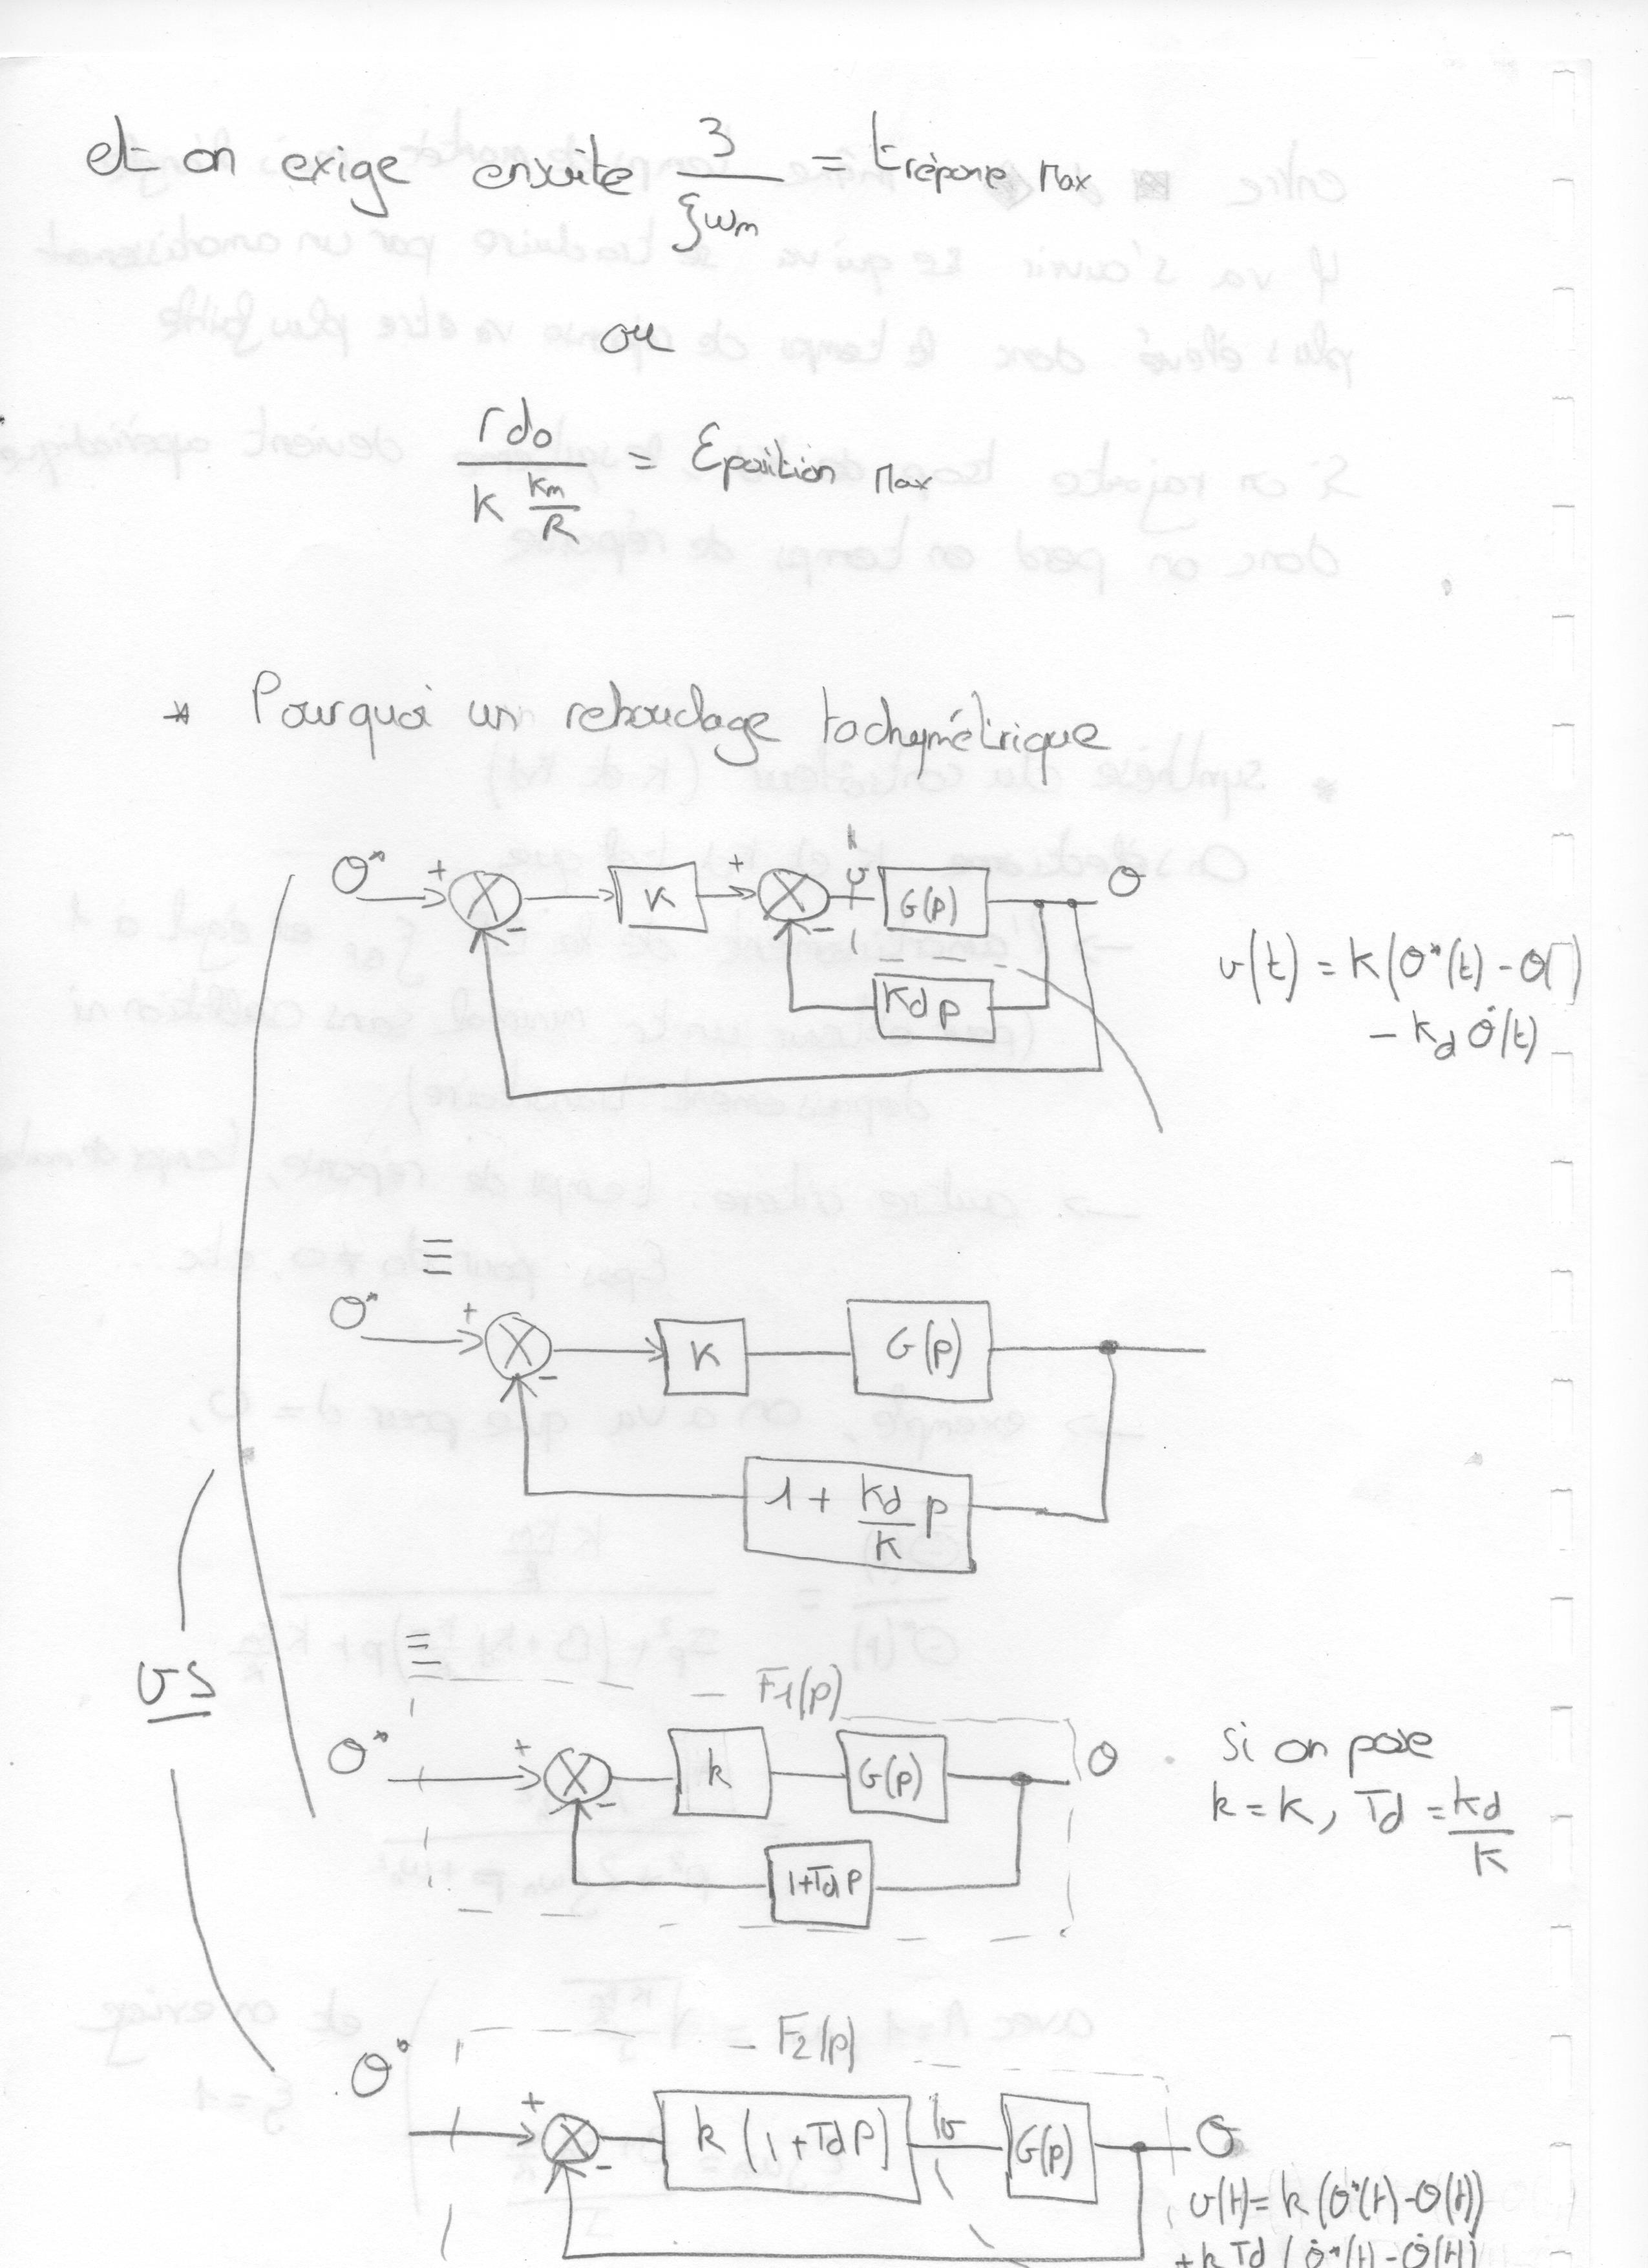 et on exige ensuite 3/ξωm = t réponse Max
ou
rd₀ / (K km/R) = Eposition Max
* Pourquoi un rebouclage tachymétrique
θ* + - K + - v G(p) θ
Kd p
v(t) = K(θ*(t) - θ()
- kd θ̇(t)
≡
θ* + - K G(p)
1 + Kd/K p
≡
F1(p)
θ* + - k G(p) θ
1+Td p
si on pose
k = K, Td = kd/K
vs
F2(p)
θ* + - k (1+Td p) v G(p) θ
v(t) = k (θ*(t) - θ(t))
+ k Td (θ̇*(t) - θ̇(t))